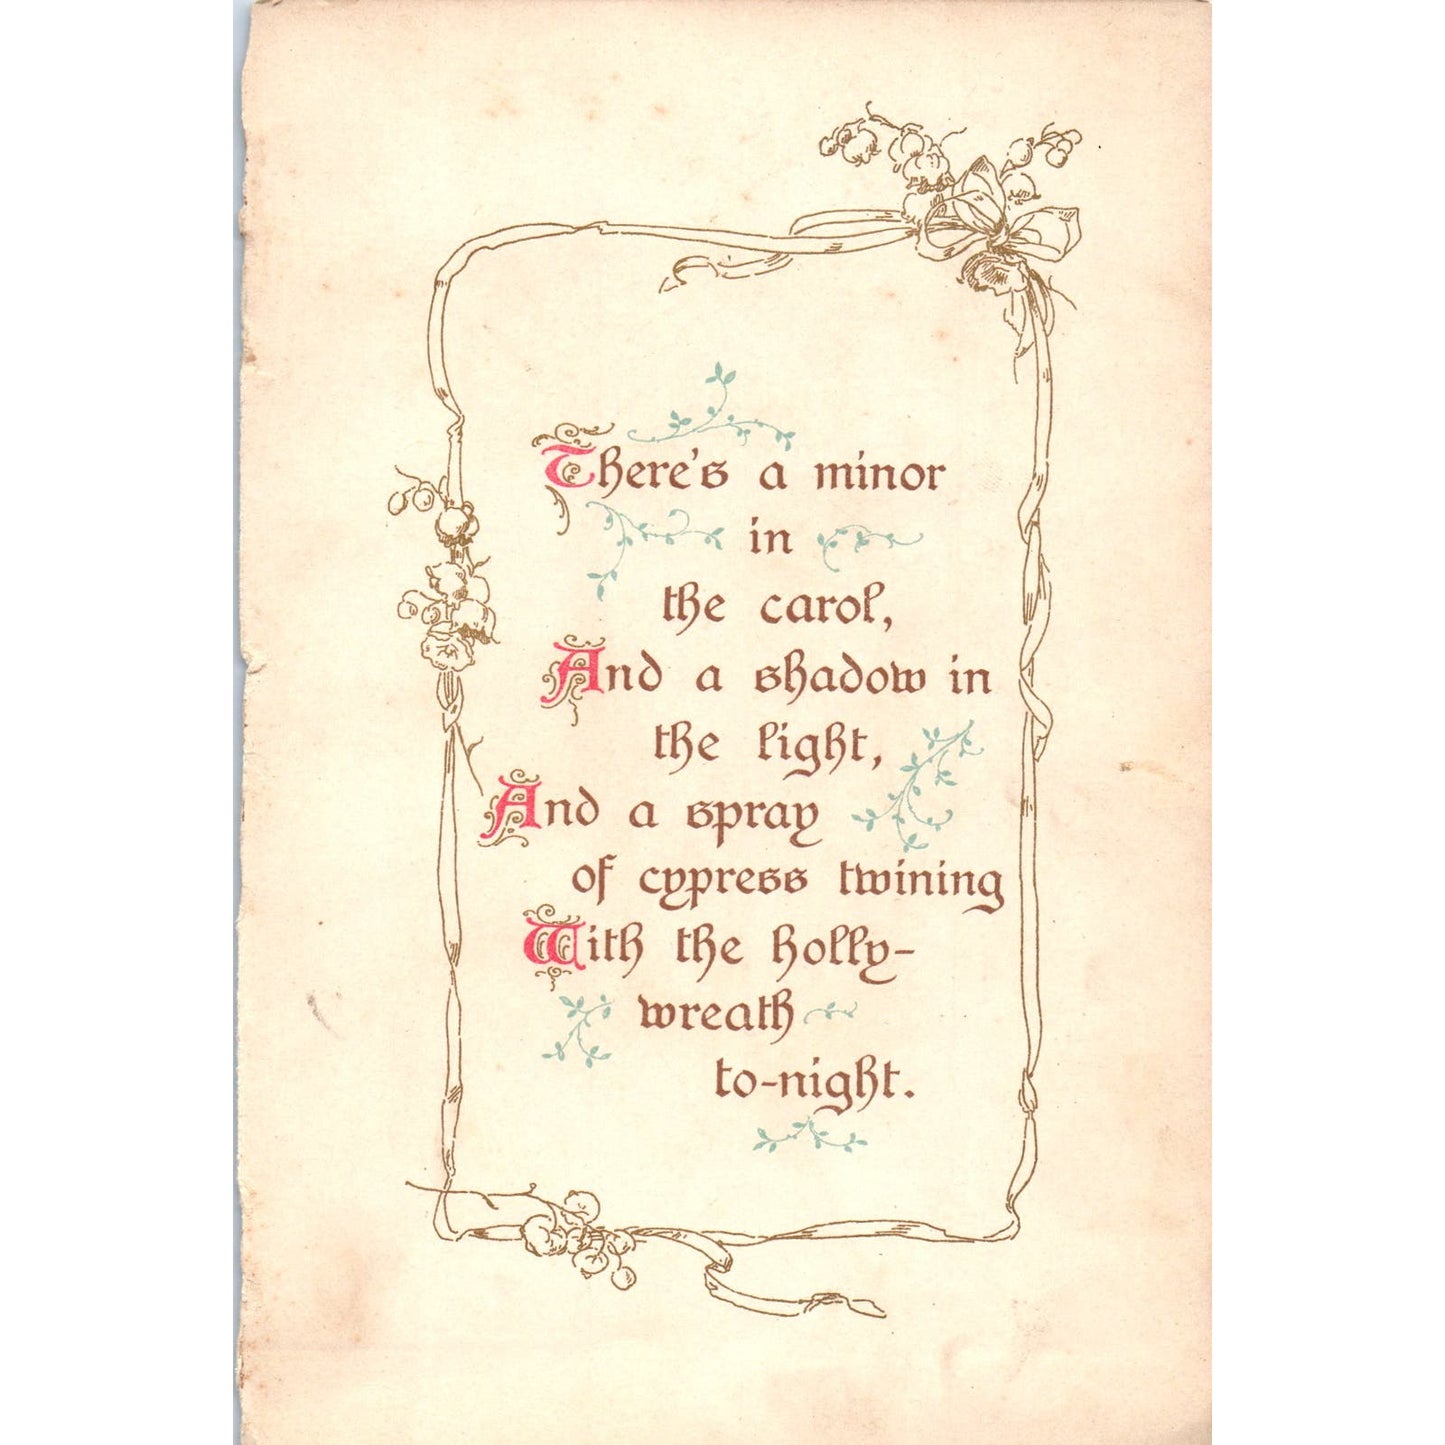 There's a minor
in
the carol,
And a shadow in
the light,
And a spray
of cypress twining
With the holly-
wreath
to-night.